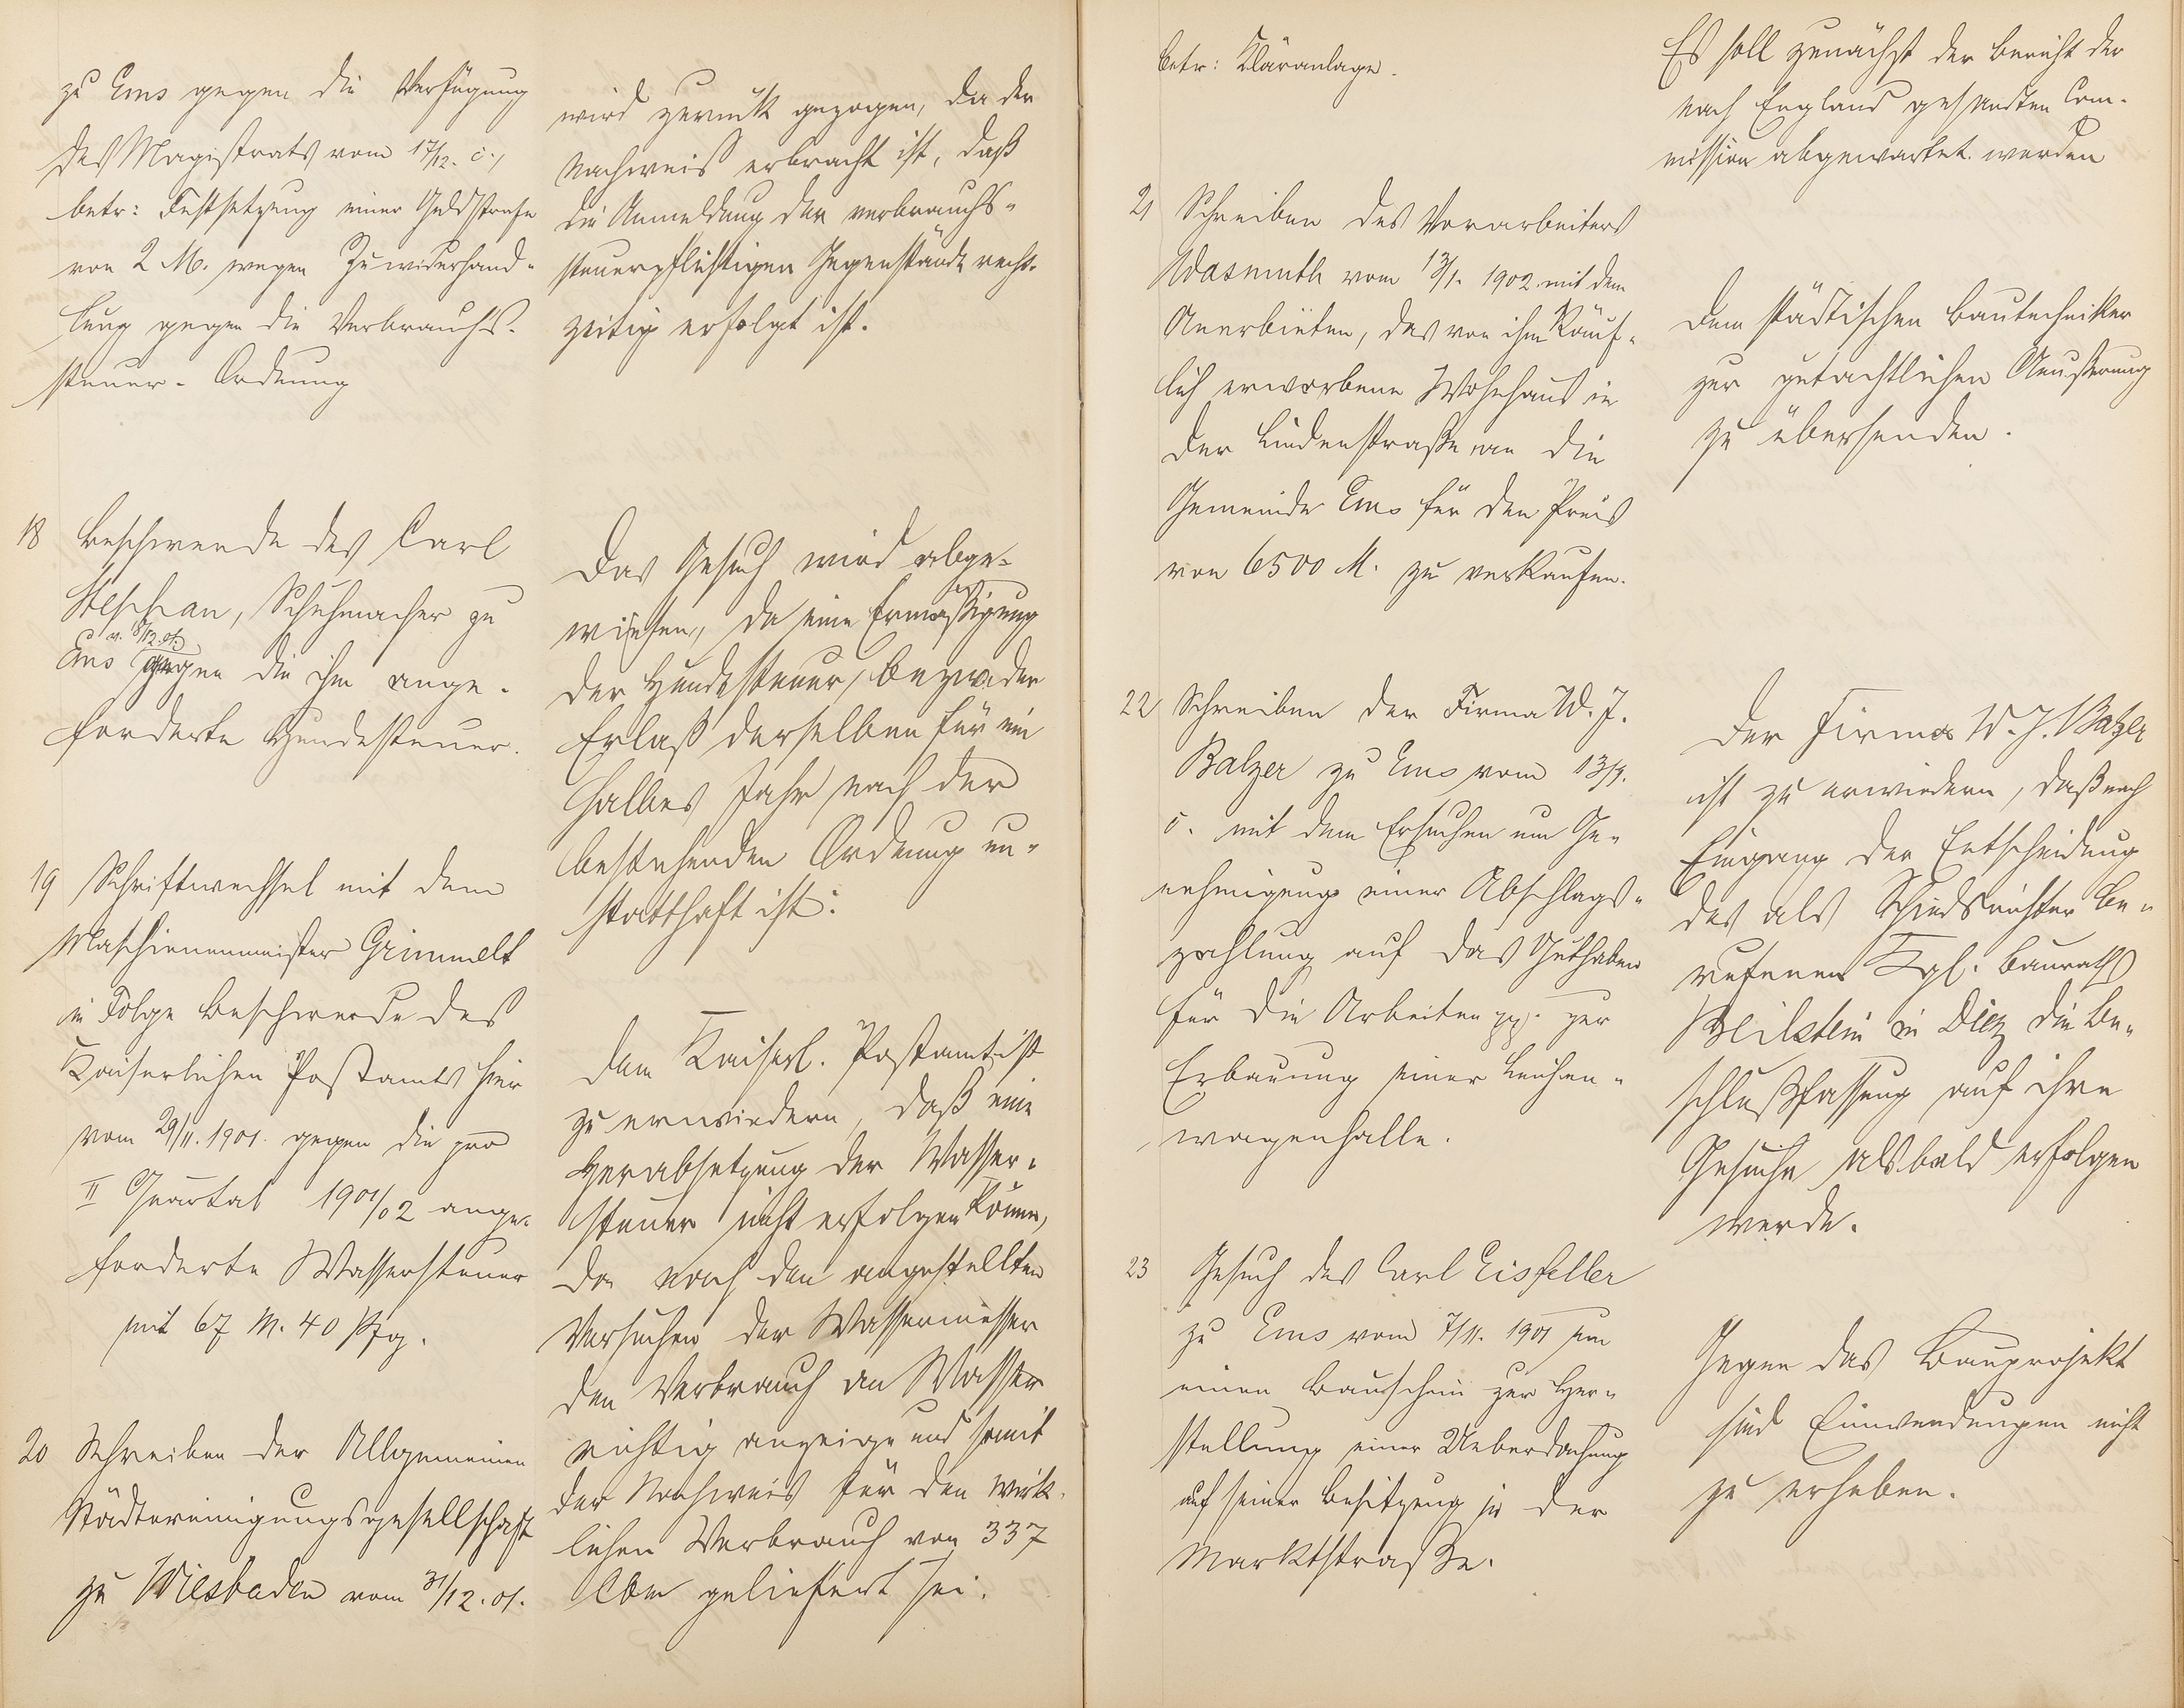 zu Ems gegen die Verfügung
des Magistrats vom 17/12. c.,
betr: Festsetzung einer Geldstrafe
von 2 M. wegen Zuwiderhand-
lung gegen die Verbrauchs-
steuer-Ordnung
wird zurück gezogen, da der
Nachweis erbracht ist, daß
die Anmeldung der verbrauchs-
steuerpflichtigen Gegenstände recht-
zeitig erfolgt ist.
18 Beschwerde des Carl
Stephan, Schuhmacher zu
v. 18/12.01
Ems gegen die ihm ange-
forderte Hundesteuer.
Das Gesuch wird abge-
wiesen, da eine Ermäßigung
der Hundesteuer, bezw. der
Erlaß derselben für ein
halbes Jahr nach der
bestehenden Ordnung un-
statthaft ist.
19 Schriftwechsel mit dem
Maschienenmeister Grimmelt
in Folge Beschwerde des
Kaiserlichen Postamts hier
vom 29/11. 1901. gegen die pro
II Quartal 1901/02 ange-
forderte Wassersteuer
mit 67 M. 40 Pfg.
Dem Kaiserl. Postamt ist
zu erwiedern, daß eine
Herabsetzung der Wasser-
steuer nicht erfolgen könne,
da nach den angestellten
Versuchen der Wassermesser
den Verbrauch an Wasser
richtig anzeige und somit
der Nachweis für den wirk-
lichen Verbrauch von 337
Cbm geliefert sei.
20 Schreiben der Allgemeinen
Städtereinigungsgesellschaft
zu Wiesbaden vom 31/12. 01.
betr: Kläranlage.
Es soll zunächst der Bericht der
nach England gesandten Com-
mission abgewartet werden
21 Schreiben des Vorarbeiters
Wasmuth vom 13/1. 1902. mit dem
Anerbieten, das von ihm käuf-
lich erworbene Wohnhaus in
der Lindenstraße an die
Gemeinde Ems für den Preis
von 6500 M. zu verkaufen.
Dem städtischen Bautechniker
zur gutachtlichen Aeußerung
zu übersenden.
22 Schreiben der Firma W. J.
Balzer zu Ems vom 13/1.
c. mit dem Ersuchen um Ge-
nehmigung einer Abschlags-
zahlung auf das Guthaben
für die Arbeiten pp. zur
Erbauung einer Leichen-
wagenhalle.
Der Firma W. J. Balzer
ist zu erwiedern, daß nach
Eingang der Entscheidung
des als Schiedsrichter be-
rufenen Kgl. Baurath
Beilstein in Diez die Be-
schlußfassung auf ihre
Gesuche alsbald erfolgen
werde.
23 Gesuch des Carl Eisfeller
zu Ems vom 7/11. 1901 um
einen Bauschein zur Her-
stellung einer Ueberdachung
auf seiner Besitzung in der
Marktstraße.
Gegen das Bauprojekt
sind Einwendungen nicht
zu erheben.